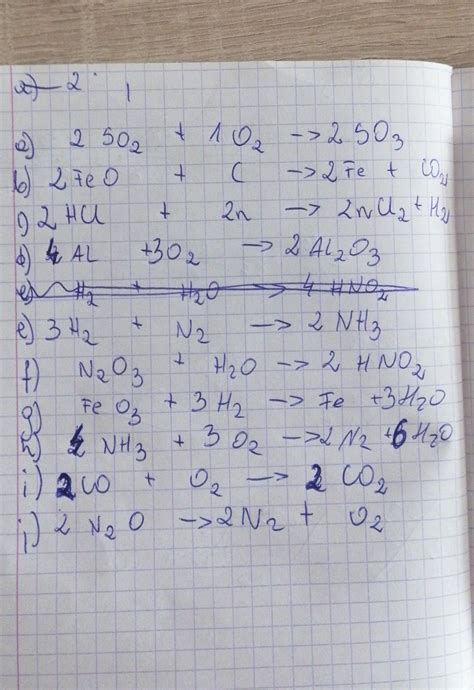 a) 2 1
a) 2 SO₂ + 1 O₂ → 2 SO₃
b) 2 FeO + C → 2 Fe + CO₂
c) 2 HCl + Zn → ZnCl₂ + H₂
d) 4 AL + 3O₂ → 2 AL₂O₃
e) H₂ + H₂O → 4 HNO₂
e) 3 H₂ + N₂ → 2 NH₃
f) N₂O₃ + H₂O → 2 HNO₂
g) FeO₃ + 3 H₂ → Fe + 3H₂O
h) 4 NH₃ + 3 O₂ → 2 N₂ + 6 H₂O
i) 2 CO + O₂ → 2 CO₂
j) 2 N₂O → 2 N₂ + O₂